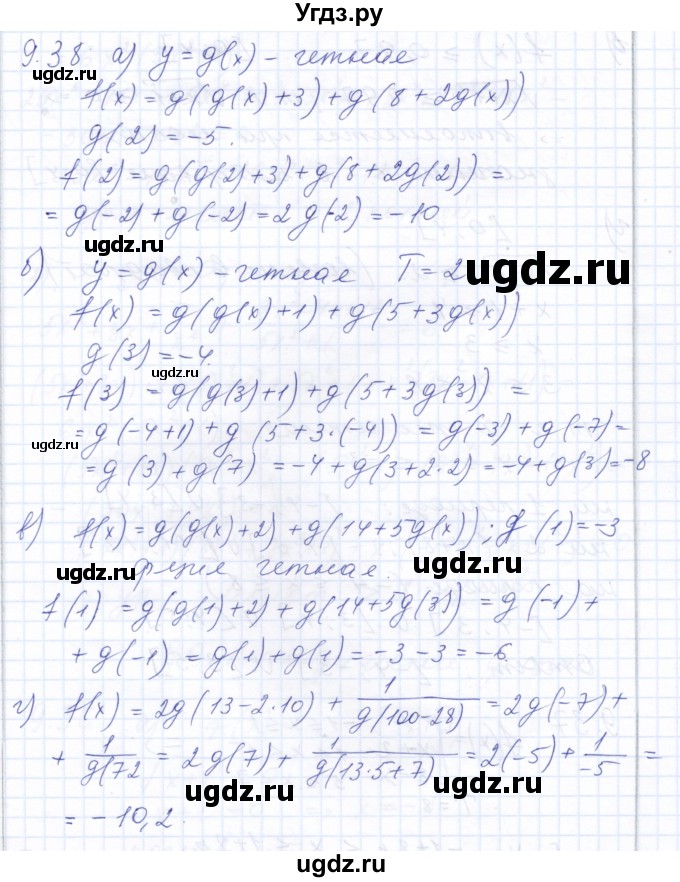 Угдз.ру
9.38 а) y = g(x) – четная
f(x) = g(g(x)+3) + g(8+2g(x))
g(2) = -5.
f(2) = g(g(2)+3) + g(8+2g(2)) =
= g(-2) + g(-2) = 2g(-2) = -10
ugdz.ru
б) y = g(x) – четная T = 2
ugdz.ru
f(x) = g(g(x)+1) + g(5+3g(x))
g(3) = -4
ugdz.ru
f(3) = g(g(3)+1) + g(5+3g(3)) =
= g(-4+1) + g(5+3·(-4)) = g(-3) + g(-7) =
ugdz.ru
= g(3) + g(7) = -4 + g(3+2·2) = -4 + g(3) = -8
в) f(x) = g(g(x)+2) + g(14+5g(x)); g(1) = -3
ugdz.ru
ugdz.ru
функция четная.
f(1) = g(g(1)+2) + g(14+5g(3)) = g(-1) +
+ g(-1) = g(1) + g(1) = -3 - 3 = -6
ugdz.ru
г) f(x) = 2g(13-2·10) + 1/g(100-28) = 2g(-7) +
+ 1/g(72 = 2g(7) + 1/g(13·5+7) = 2(-5) + 1/-5 =
ugdz.ru
ugdz.ru
= -10,2.
ugdz.ru